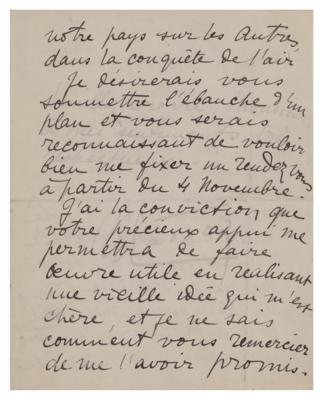 notre pays sur les Autres,
dans la conquête de l'air
Je désirerais vous
soumettre l'ébauche d'un
plan et vous serais
reconnaissant de vouloir
bien me fixer un rendez vous
à partir du 4 Novembre.
J'ai la conviction que
votre précieux appui me
permettra de faire
œuvre utile en réalisant
une vieille idée qui m'est
chère, et je ne sais
comment vous remercier
de me l'avoir promis.